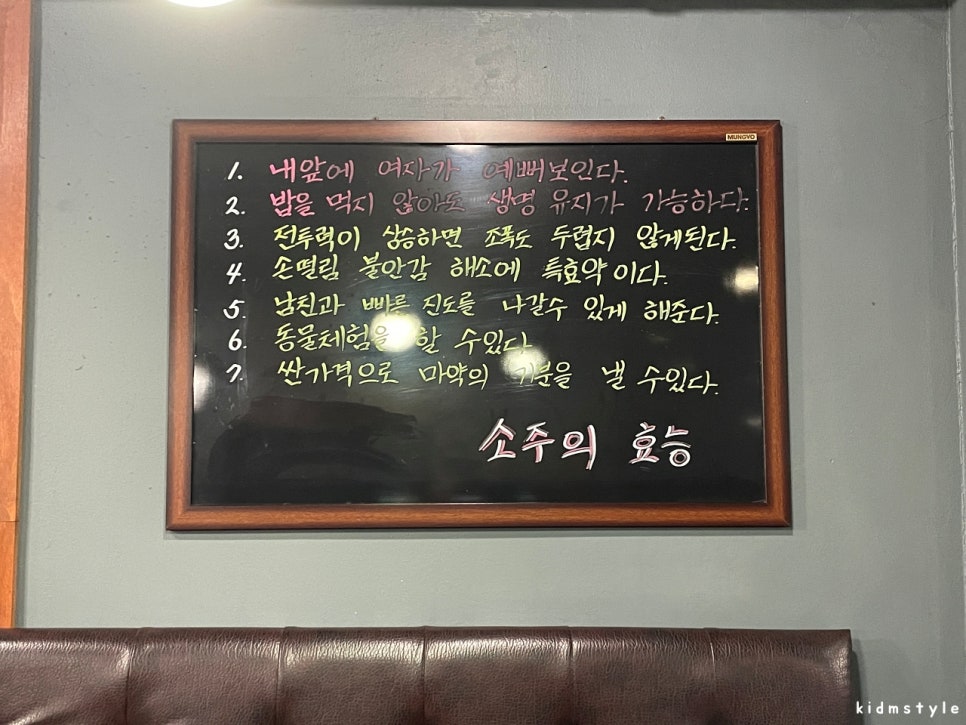 MUNGYO
1. 내앞에 여자가 예뻐보인다.
2. 밥을 먹지 않아도 생명 유지가 가능하다.
3. 전투력이 상승하면 조폭도 두렵지 않게된다.
4. 손떨림 불안감 해소에 특효약이다.
5. 남친과 빠른 진도를 나갈수 있게 해준다.
6. 동물체험을 할 수있다.
7. 싼가격으로 마약의 기분을 낼 수있다.
소주의 효능
kidmstyle